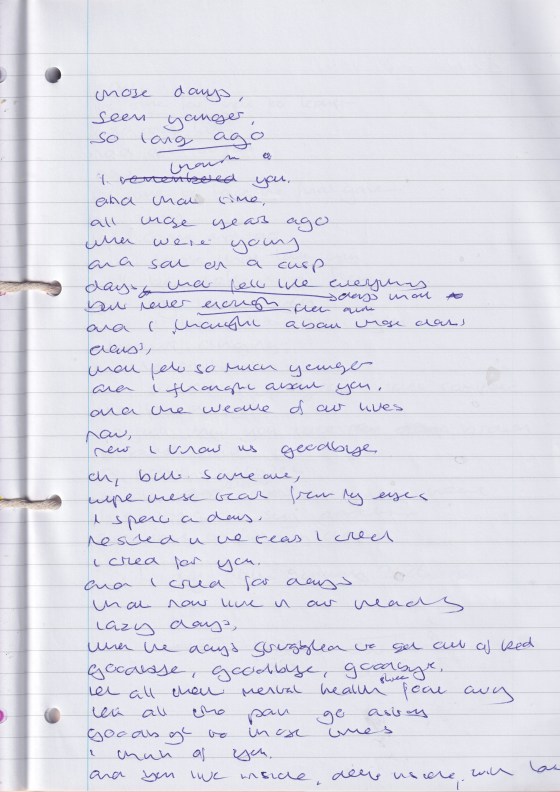 those days,
seem younger,
so long ago
known
i remembered you.
and that time.
all those years ago
when were young
and sat on a cusp
days, that felt like everything
but never enough days that
and i thought about those days
days,
that felt so much younger
and i thought about you.
and the weave of our lives
now,
now i know its goodbye
oh, but someone,
wipe these tears from my eyes
i spent a days.
nestled in the tears i cried
i cried for you.
and i cried for days
that now live in our heads
lazy days,
when the days struggled to get out of bed
goodbye, goodbye, goodbye.
let all mental health fade away
let all the pain go astray
goodbye to those times
i think of you.
and you live inside, deep inside, with